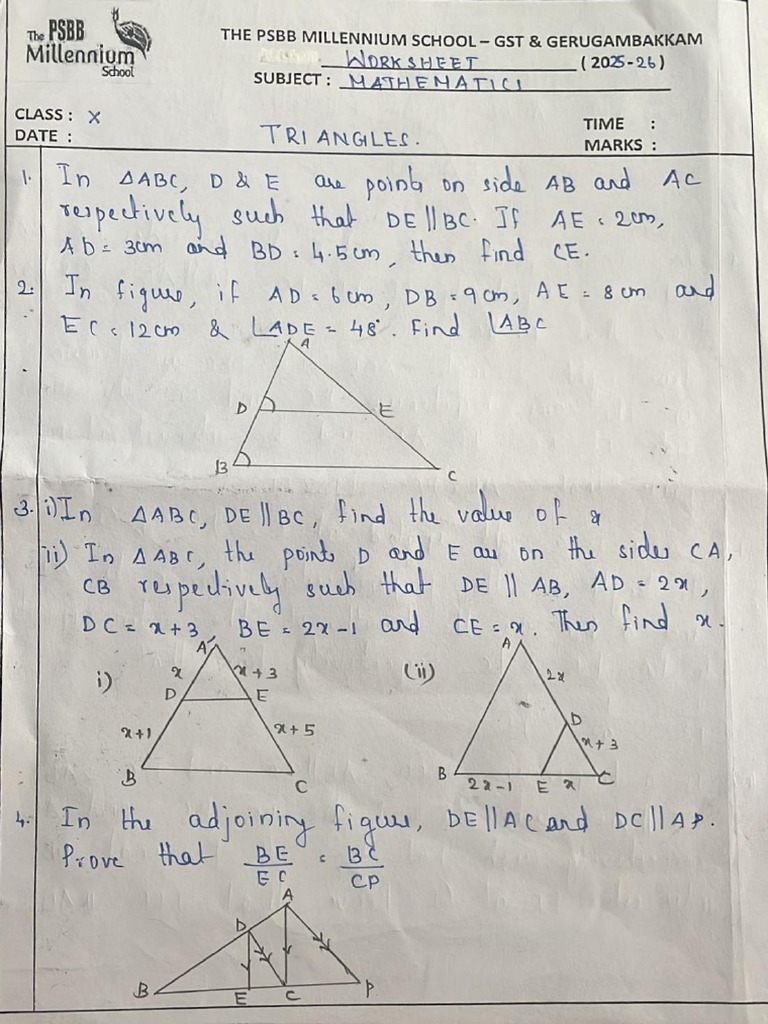 The PSBB
Millennium
School
THE PSBB MILLENNIUM SCHOOL – GST & GERUGAMBAKKAM
WORKSHEET (2025-26)
SUBJECT : MATHEMATICS
CLASS : X
DATE :
TRIANGLES.
TIME :
MARKS :
1. In △ABC, D & E are points on side AB and AC
respectively such that DE || BC. If AE = 2cm,
AD = 3cm and BD = 4.5cm, then find CE.
2. In figure, if AD = 6cm, DB = 9cm, AE = 8cm and
EC = 12cm & ∠ADE = 48°. Find ∠ABC
A
D
E
B
C
3. i) In △ABC, DE || BC, find the value of x
ii) In △ABC, the points D and E are on the sides CA,
CB respectively such that DE || AB, AD = 2x,
DC = x+3, BE = 2x-1 and CE = x. Then find x.
i)
A
x
x+3
D
E
x+1
x+5
B
C
(ii)
A
2x
D
x+3
B
2x-1
E
x
C
4. In the adjoining figure, DE || AC and DC || AP.
Prove that BE/EC = BC/CP
A
D
B
E
C
P